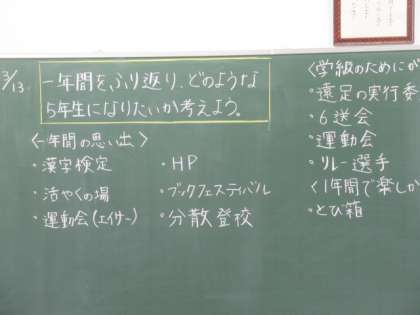 3/13
一年間をふり返り、どのような
5年生になりたいか考えよう。
<一年間の思い出>
・漢字検定
・活やくの場
・運動会(エイサー)
・HP
・ブックフェスティバル
・分散登校
<学級のためにが
・遠足の実行委
・6送会
・運動会
・リレー選手
<1年間で楽しか
・とび箱